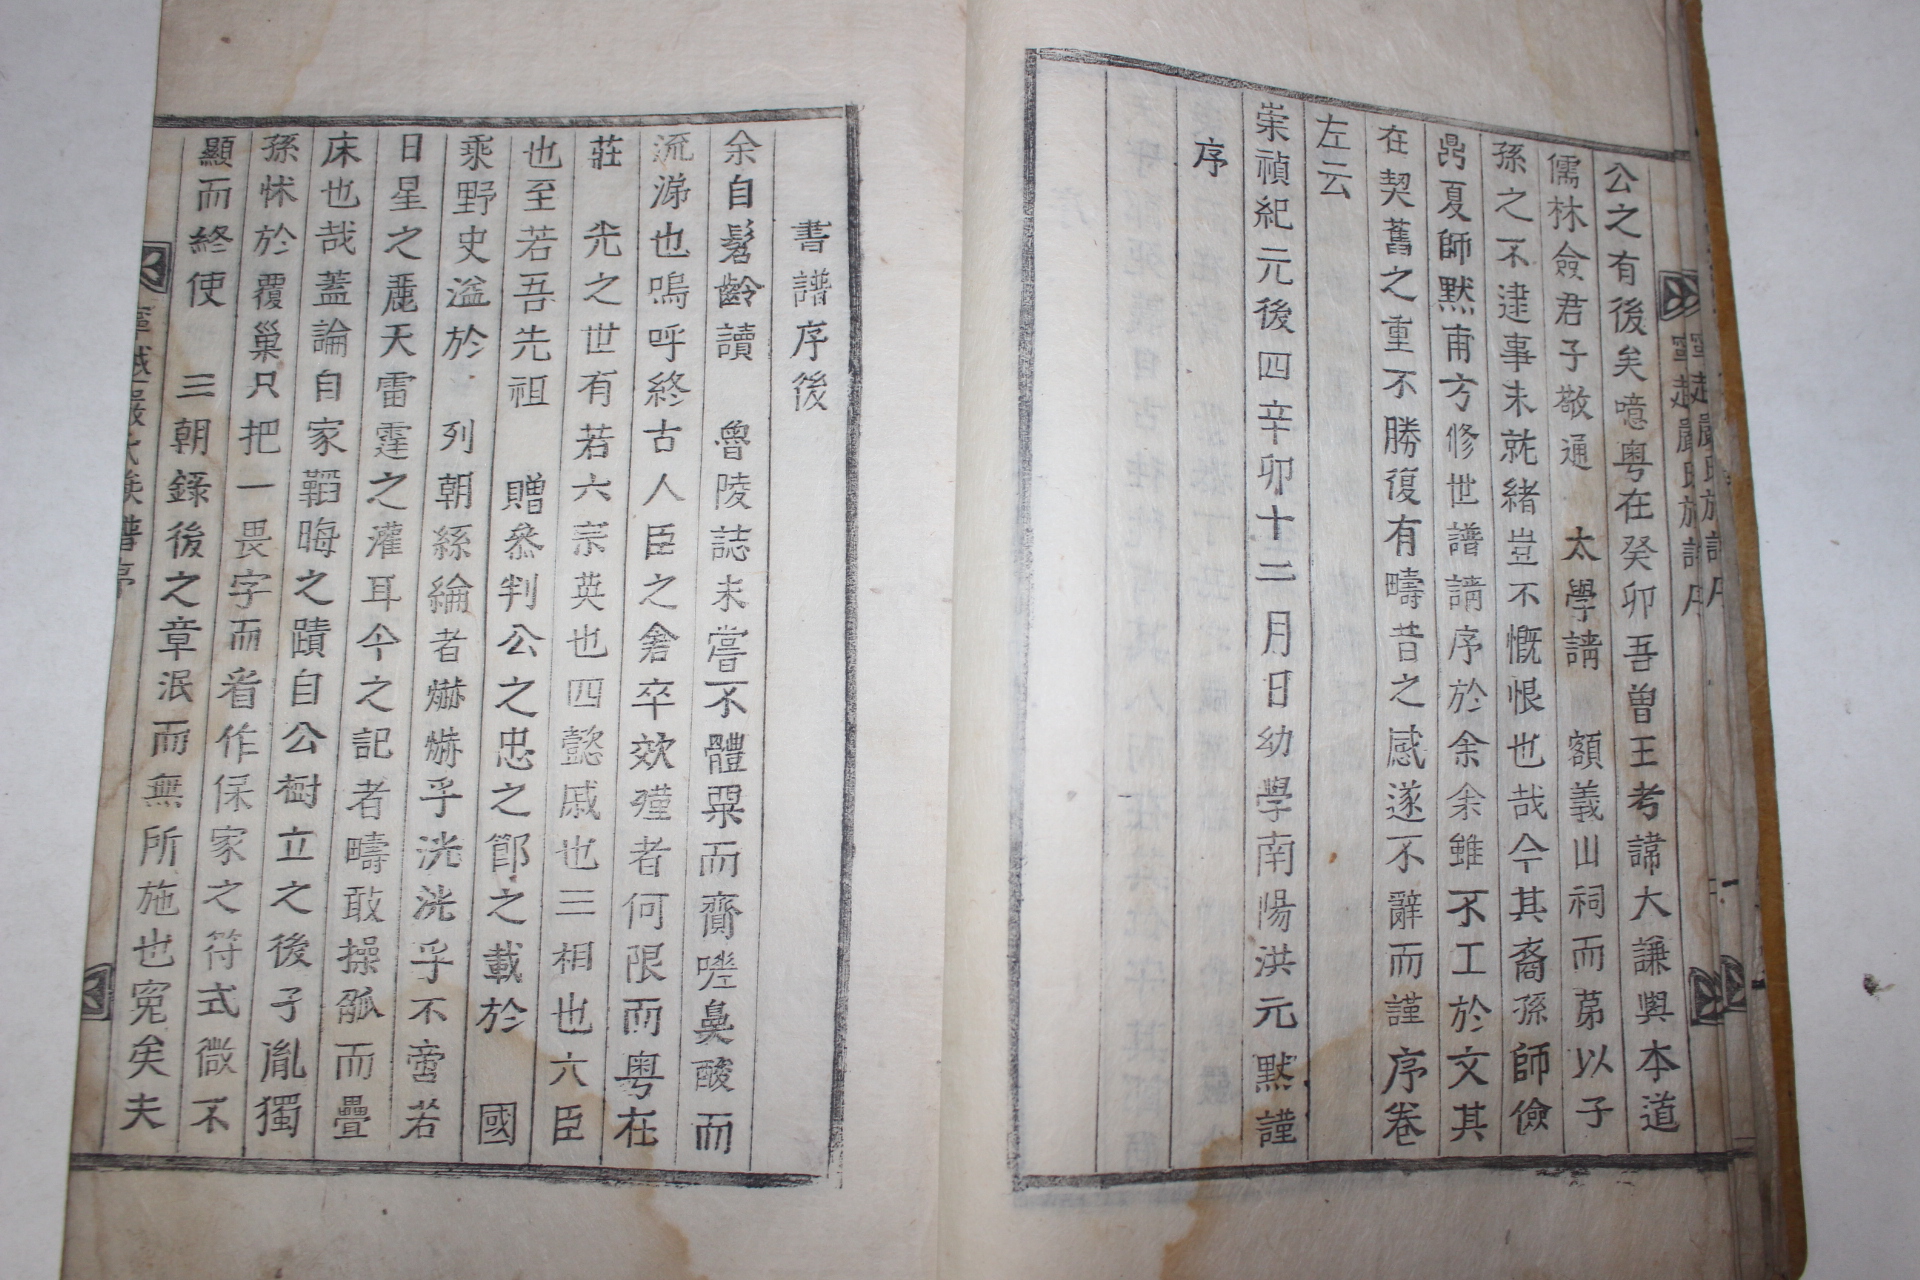 公之有後矣噫粤在癸卯吾曾王考諱大謙與本道
儒林僉君子敬通 太學請 額義山祠而苐以子
孫之不逮事未就緖豈不慨恨也哉今其裔孫師儉
昺夏師默甫方修世譜請序於余余雖不工於文其
在契舊之重不勝復有疇昔之感遂不辭而謹序卷
左云
崇禎紀元後四辛卯十二月日幼學南陽洪元默謹
序
書譜序後
余自髫齡讀 魯陵誌未嘗不體粟而齎嗟鼻酸而
流涕也嗚呼終古人臣之盦卒效殣者何限而粤在
莊 光之世有若六宗英也四懿戚也三相也六臣
也至若吾先祖 贈叅判公之忠之節之載於 國
乘野史溢於 列朝絲綸者爀爀乎洸洸乎不啻若
日星之麗天雷霆之灌耳今之記者疇敢操觚而疊
床也哉蓋論自家韜晦之蹟自公樹立之後子胤獨
孫怵於覆巢只把一畏字而看作保家之符式微不
顯而終使 三朝錄後之章泯而無所施也寃矣夫
寧越嚴氏族譜序